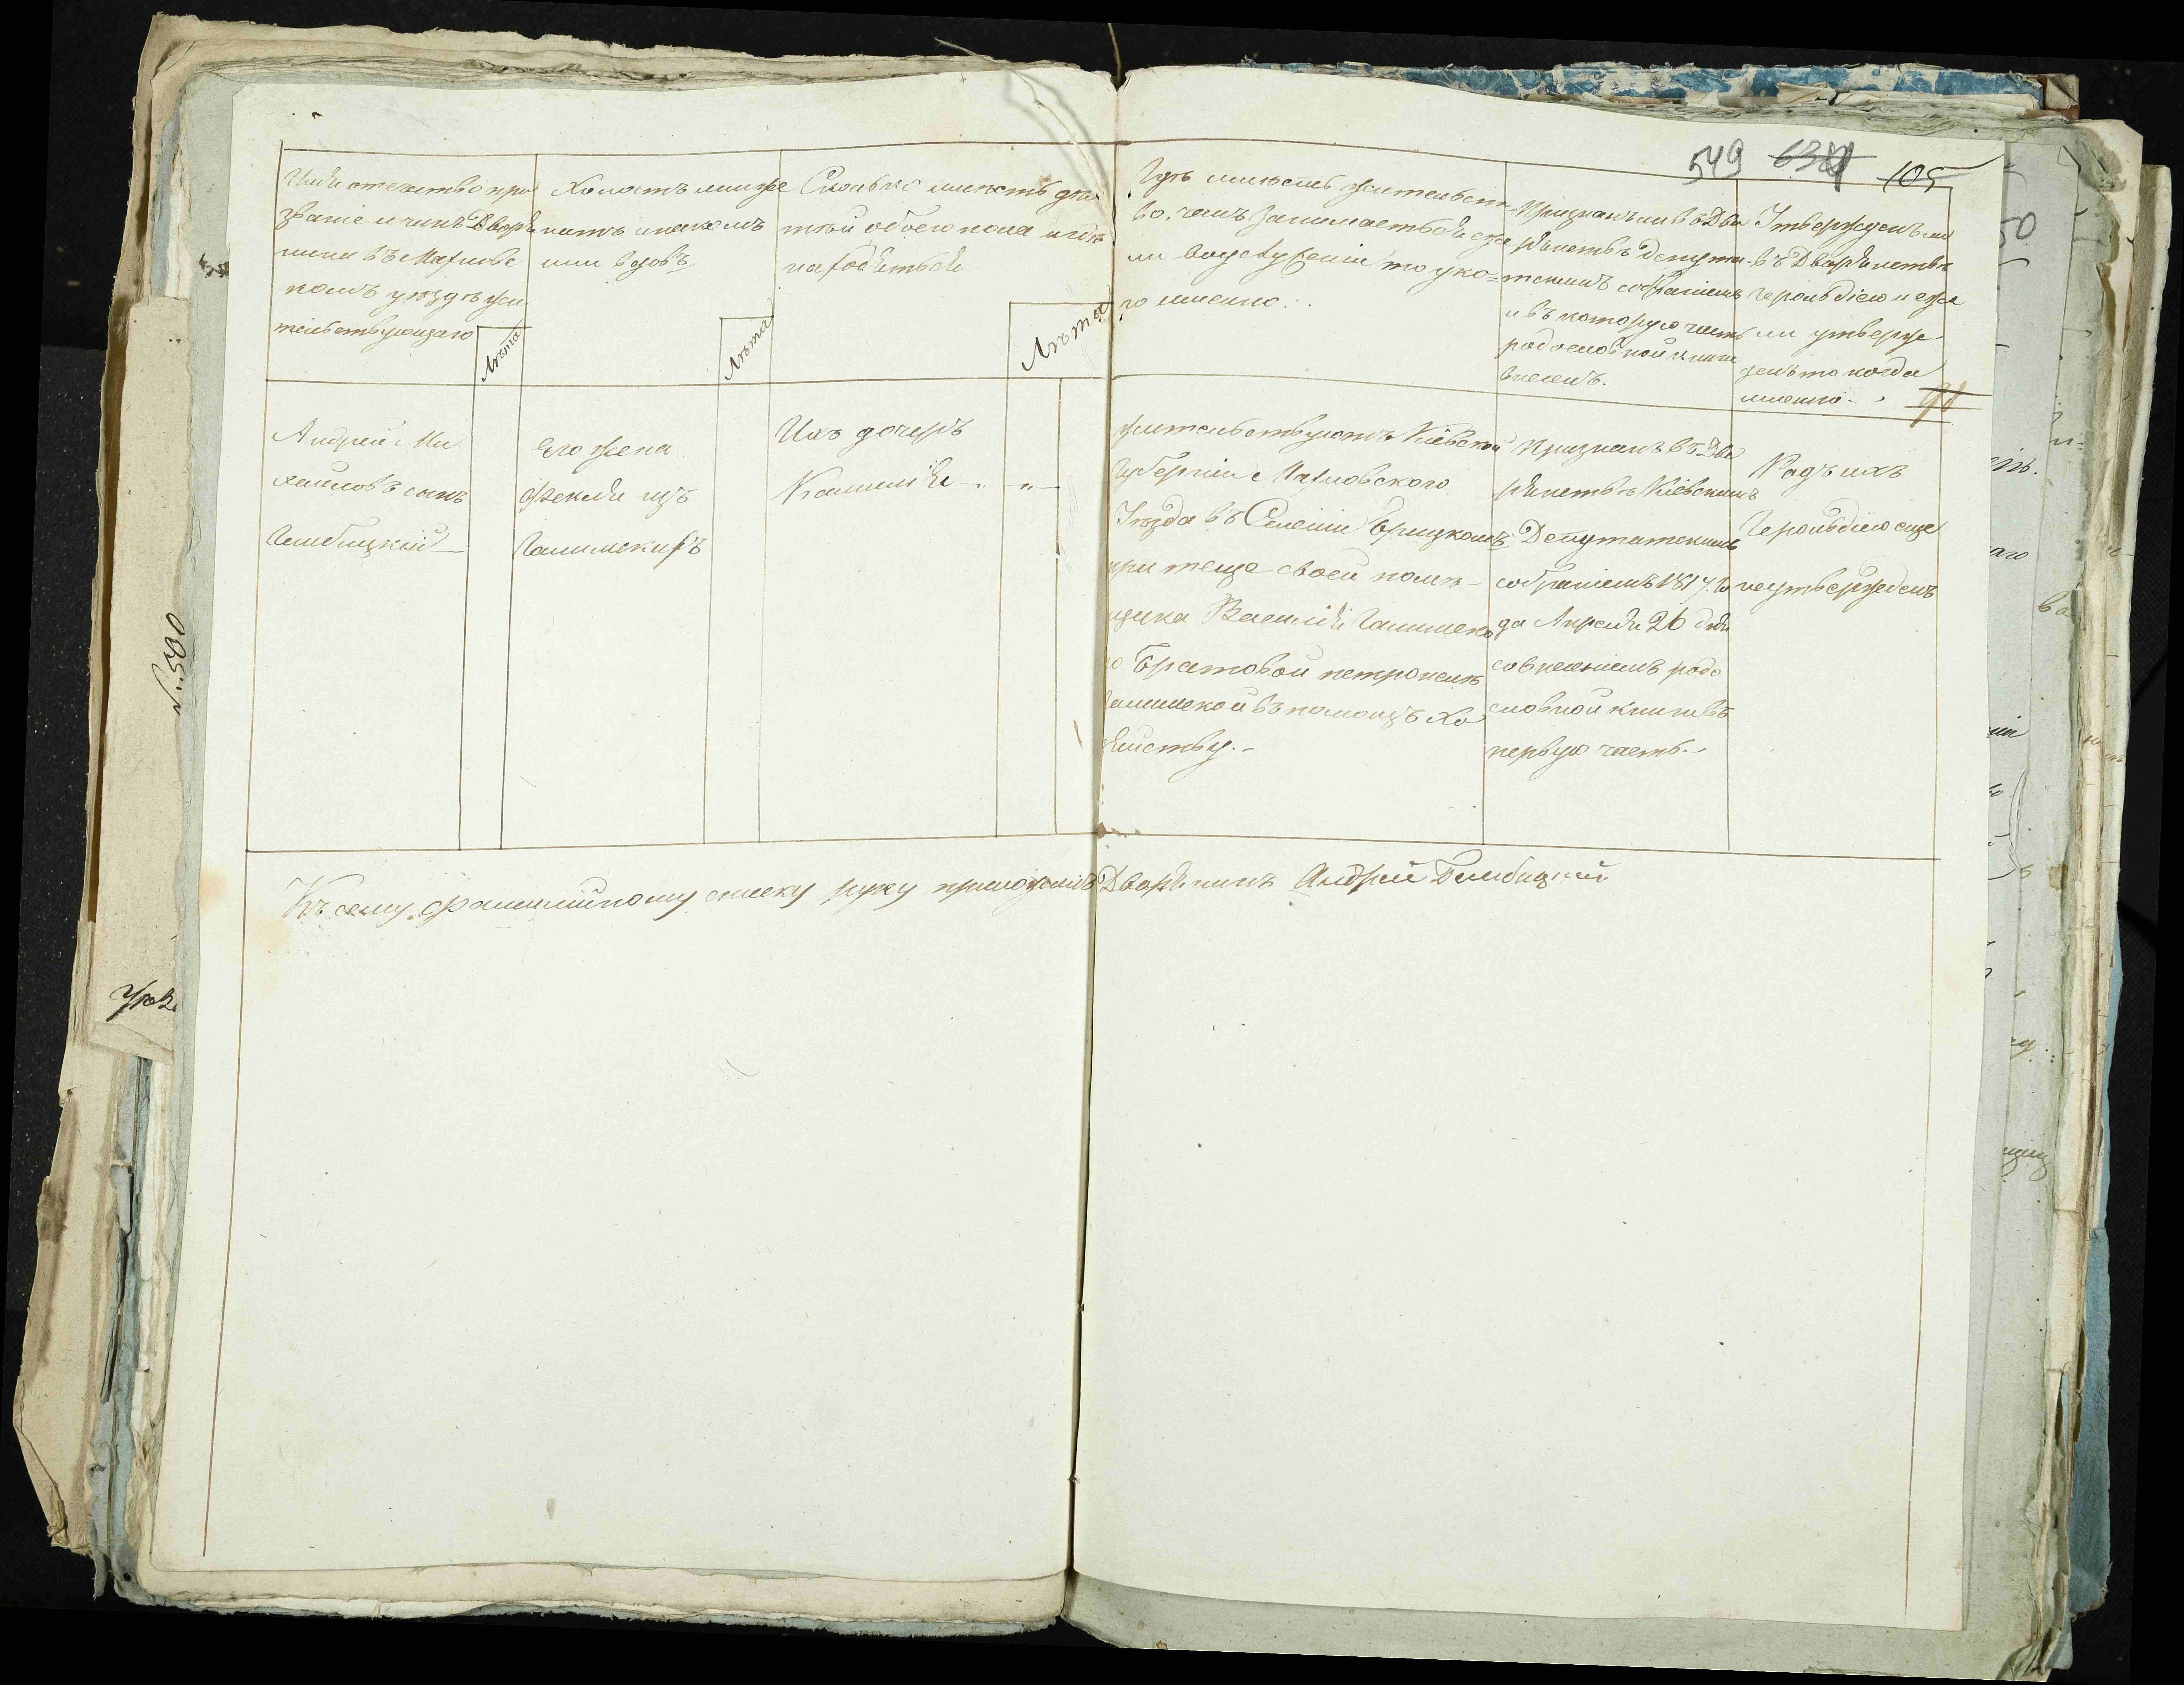 549 634 105
Имя отечество про
званіе и чинъ Дворя
нина въ Махновс
комъ уѣздѣ жи
тельствующаго
Лѣта
Холостъ или же
натъ и на комъ
или вдовъ
Лѣта
Сколько имѣетъ дѣ
тей обоего пола и гдѣ
находятся
Лѣта
Гдѣ имѣетъ жительст
во, чемъ занимается еже
ли въ услуженіи то у ко=
го именно.
Признанъ ли въ Дво
рянствѣ Депута
тскимъ собраніемъ
и въ которую часть
родословной книги
внесенъ.
Утвержденъ ли
въ Дворянствѣ
Герольдіею и еже
ли утверж
денъ то когда
именно.
Андрей Ми
хайловъ сынъ
Гембицкій
Его жена
Фекля изъ
Галимскихъ
Ихъ дочеръ
Камилія
жительствуютъ Кіевской
Губерніи Махновского
Уѣзда въ Селеніи Брицкомъ
при теще своей помѣ
щика Василія Галимско
го Братовой петронели
Галимской въ помощъ хо
зяйству.
Признанъ въ Дво
рянствѣ Кіевскимъ
Депутатскимъ
собраніемъ 1817. го
да Апреля 26 дня
со внесеніемъ родо
словной книги въ
первую часть
Родъ ихъ
Герольдіею еще
неутвержденъ
Къ сему фамилійному списку руку приложилъ Дворянинъ Андрей Гембицкий
№ 590